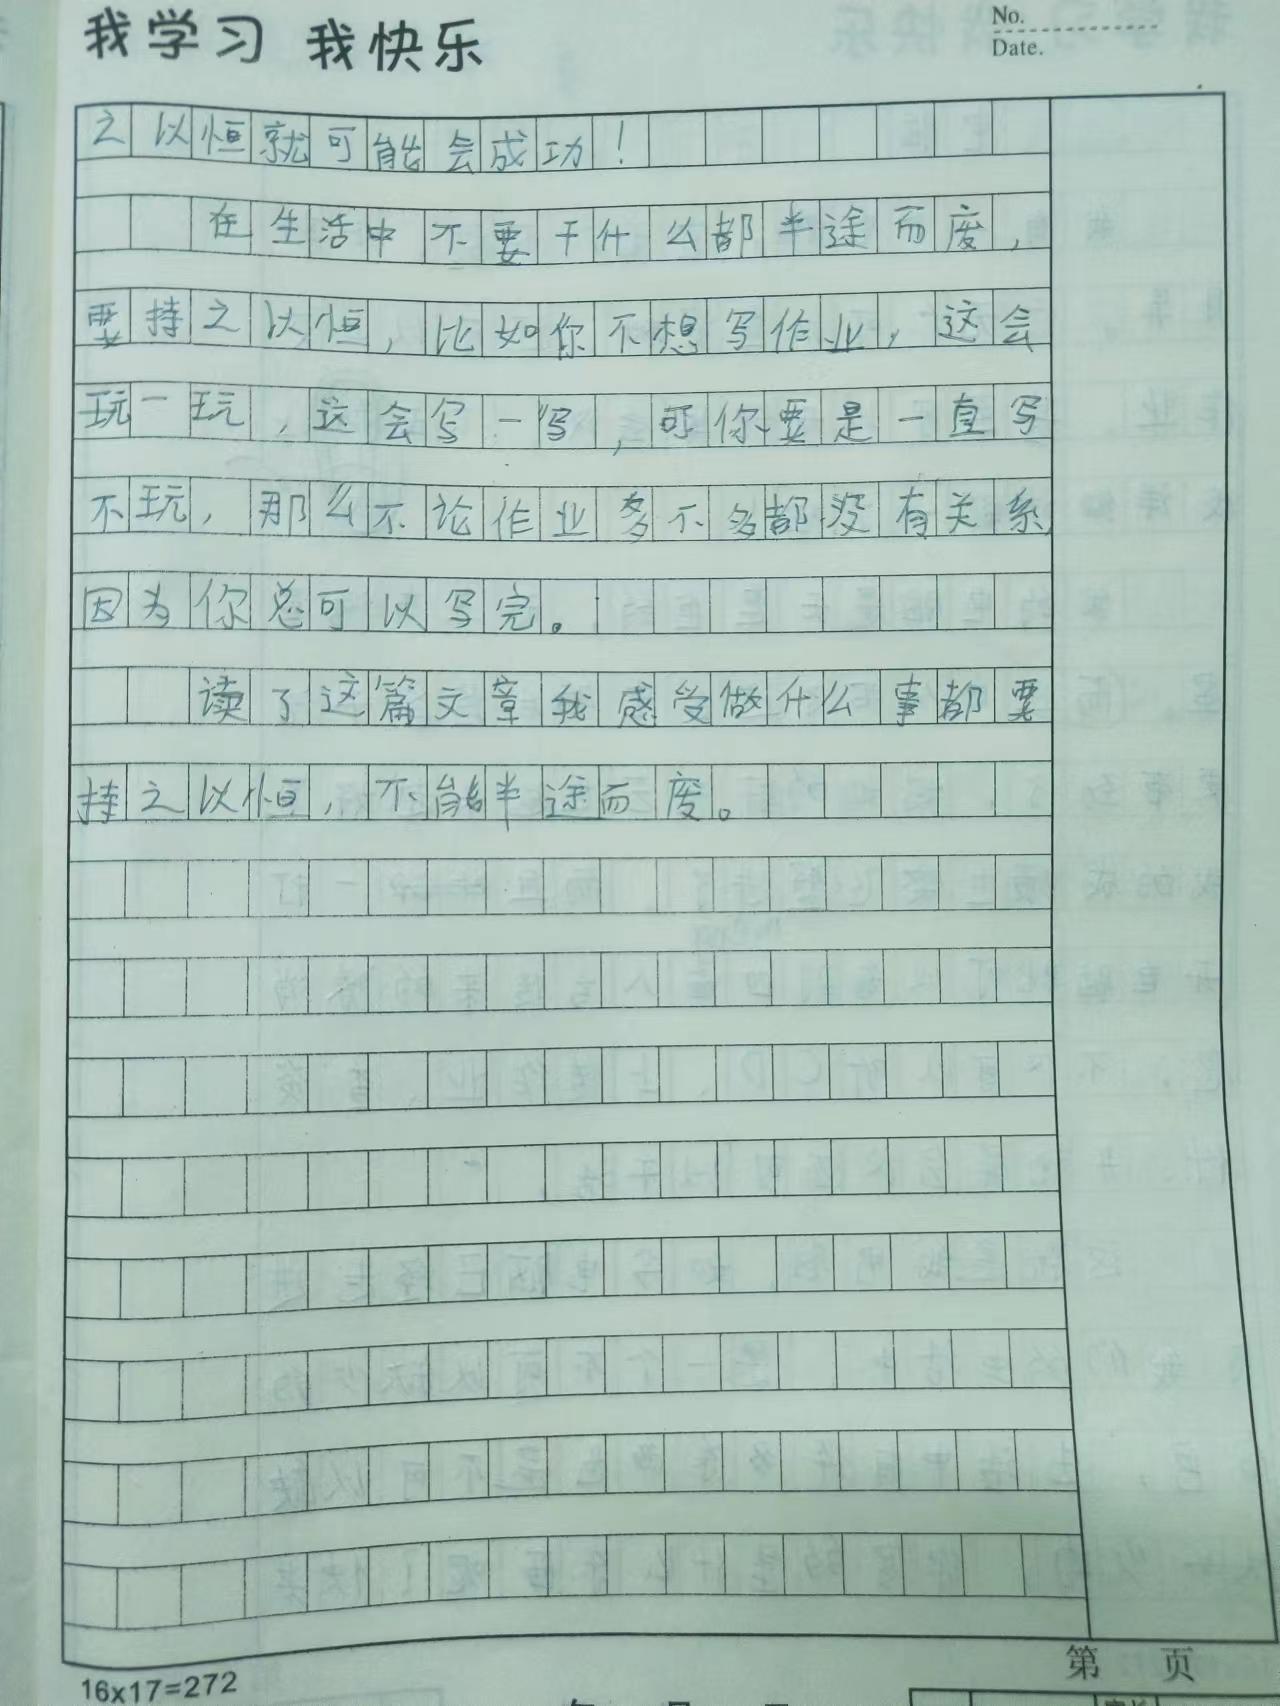 我学习 我快乐
No.
Date.
之以恒就可能会成功！
在生活中不要干什么都半途而废，
要持之以恒，比如你不想写作业，这会
玩一玩，这会写一写，可你要是一直写
不玩，那么不论作业多不多都没有关系
因为你总可以写完。
读了这篇文章我感受做什么事都要
持之以恒，不能半途而废。
第 页
16x17=272